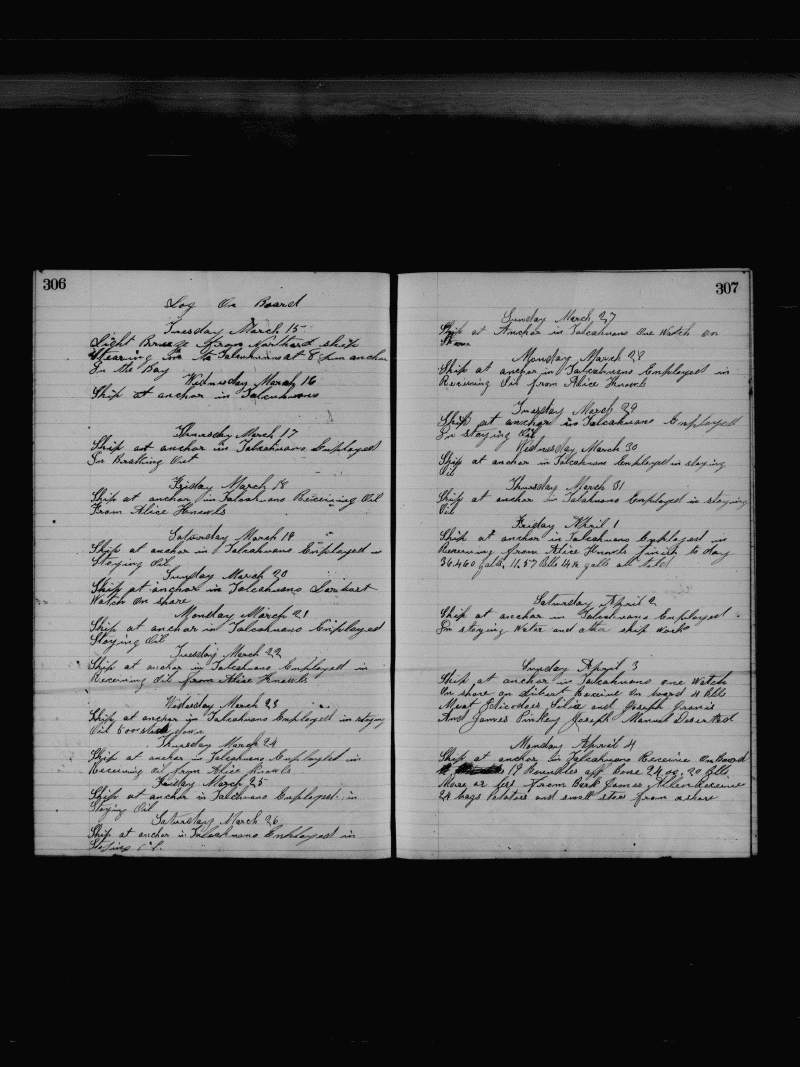 306
Log On Board
Tuesday March 15
Light Breeze from Northard ship
Stearing in to Talcahuano at 8 pm anchor
In the Bay
Wednesday March 16
Ship at anchor in Talcahuano
Thursday March 17
Ship at anchor in Talcahuano Employed
In Out
Friday March 18
Ship at anchor in Talcahuano Receiving Oil
From Alice Knowls
Saturday March 19
Ship at anchor in Talcahuano Employed in
Stoying Oil
Sunday March 20
Ship at anchor in Talcahuano
Watch On shore
Monday March 21
Ship at anchor in Talcahuano Employed
Stoying Oil
Tuesday March 22
Ship at anchor in Talcahuano Employed in
Receiving Oil from Alice Knowls
Wedesday March 23
Ship at anchor in Talcahuano Employed in stoying
Oil down
Thursday March 24
Ship at anchor in Talcahuano Employed in
Receiving Oil from Alice Knowls
Friday March 25
Ship at anchor in Talcahuano Employed in
Stoying Oil
Saturday March 26
Ship at anchor in Talcahuano Employed in
Stoying Oil
307
Sunday March 27
Ship at Anchor in Talcahuano One Watch on
Shore
Monday March 28
Ship at anchor in Talcahuano Employed in
Receiving Oil from Alice Knowls
Tuesday March 29
Ship at anchor in Talcahuano Employed
In stoying Oil
Wednesday March 30
Ship at anchor in Talcahuano Employed in stoying
Oil
Thursday March 31
Ship at anchor in Talcahuano Employed in stoying
Oil
Friday April 1
Ship at anchor in Talcahuano Employed in
Receiving from Alice Knowls finish to day
36.460 galls, 11,57 Blls galls all told
Saturday April 2
Ship at anchor in Talcahuano Employed
In stoying Water and other ship Work
Sunday April 3
Ship at anchor in Talcahuano one Watch
On shore on Libert Receive On board 4 Blls
Meat Silvia and Joseph Francis
And James Pinkey Joseph Manuel Deserted
Monday Apriel 4
Ship at anchor in Talcahuano Receive On Board
19 Boundles off Bone 24 no. 20 Blls
More or less From Bark James Allen Receive
24 bags Potatoes and small stors from ashore